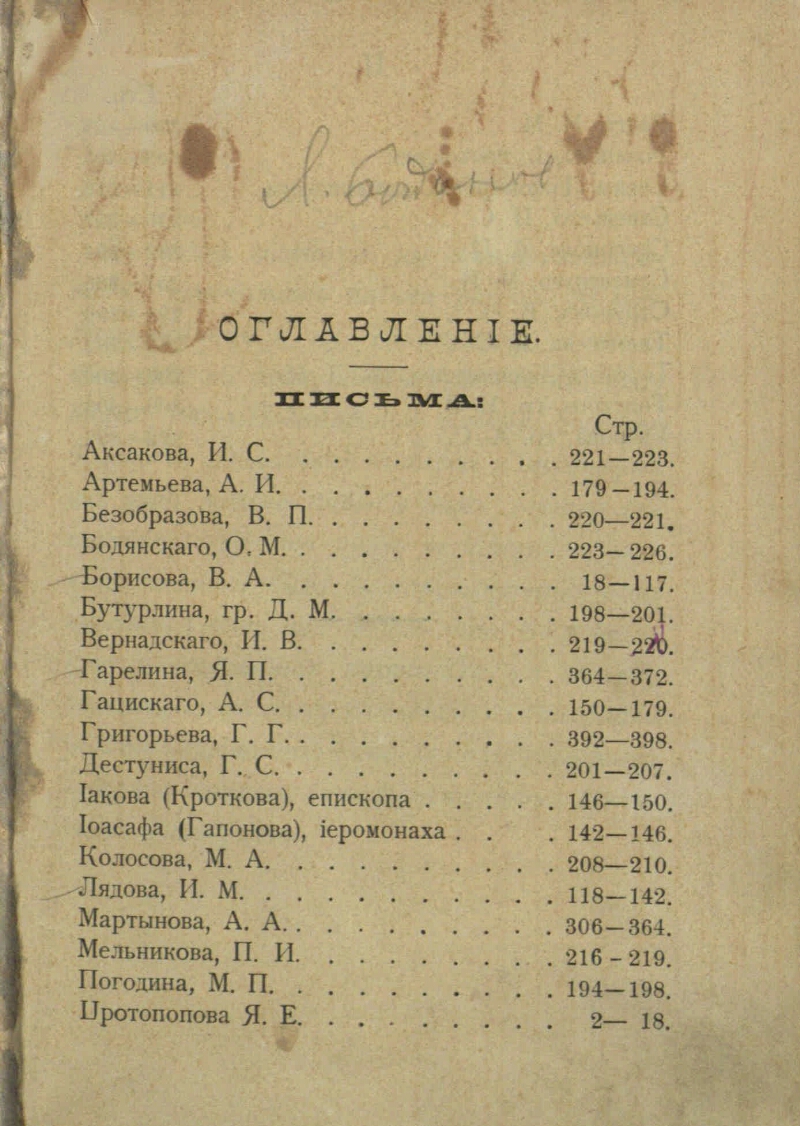 ОГЛАВЛЕНІЕ.
ПИСЬМА:
Стр.
Аксакова, И. С. . . . . . . . . . . 221—223.
Артемьева, А. И. . . . . . . . . . . 179—194.
Безобразова, В. П. . . . . . . . . . 220—221.
Бодянскаго, О. М. . . . . . . . . . . 223—226.
Борисова, В. А. . . . . . . . . . . 18—117.
Бутурлина, гр. Д. М. . . . . . . . . 198—201.
Вернадскаго, И. В. . . . . . . . . . 219—220.
Гарелина, Я. П. . . . . . . . . . . 364—372.
Гацискаго, А. С. . . . . . . . . . . 150—179.
Григорьева, Г. Г. . . . . . . . . . . 392—398.
Дестуниса, Г. С. . . . . . . . . . . 201—207.
Іакова (Кроткова), епископа . . . . . 146—150.
Іоасафа (Гапонова), іеромонаха . . . 142—146.
Колосова, М. А. . . . . . . . . . . 208—210.
Лядова, И. М. . . . . . . . . . . . 118—142.
Мартынова, А. А. . . . . . . . . . . 306—364.
Мельникова, П. И. . . . . . . . . . 216-219.
Погодина, М. П. . . . . . . . . . . 194—198.
Протопопова Я. Е. . . . . . . . . . 2— 18.